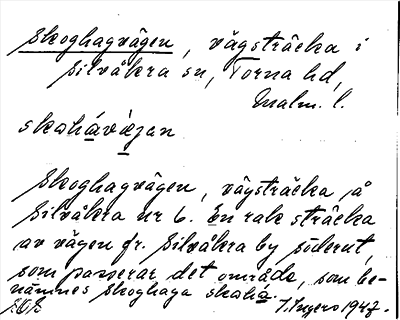 Skoghagvägen, vägsträcka i
Silvåkra sn, Torna hd,
Malm. l.
skahávæ̀gan
Skoghagvägen, vägsträcka på
Silvåkra nr 6. En rak sträcka
av vägen fr. Silvåkra by söderut,
som passerar det område, som be-
nämnes Skoghaga skahá.
I. Ingers 1947.